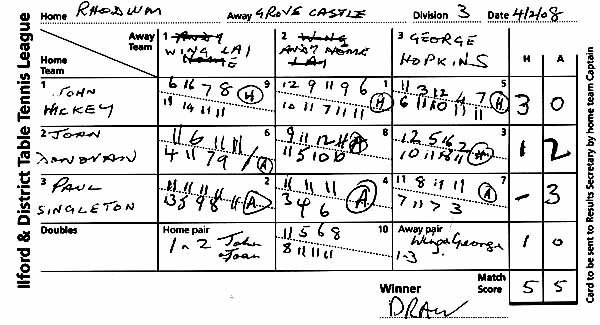 Ilford & District Table Tennis League
Home RHODWM Away GROVE CASTLE Division 3 Date 4/2/08
Away Team
Home Team
1 ANDY
WING LAI
NOME
2 WING
ANDY NOME
LAI
3 GEORGE
HOPKINS
H A
1 JOHN
HICKEY
6 16 7 8 9
11 14 11 11 H
12 9 11 9 6 1
10 11 7 11 11 H
11 3 12 4 7 5
6 11 10 11 11 H
3 0
2 JOAN
DONOVAN
11 6 11 11 6
4 11 7 9 A
9 11 12 11 8
11 5 10 6 A
12 5 16 2 3
10 11 18 11 H
1 2
3 PAUL
SINGLETON
11 11 11 11 2
13 5 9 8 11 A
11 11 11 4
3 4 6 A
11 8 11 11 7
7 11 7 3 A
- 3
Doubles
Home pair
1 n 2 John
& Joan
11 5 6 8 10
8 11 11 11
Away pair
Wing & George
1-3
1 0
Winner
DRAW
Match Score 5 5
Card to be sent to Results Secretary by home team Captain